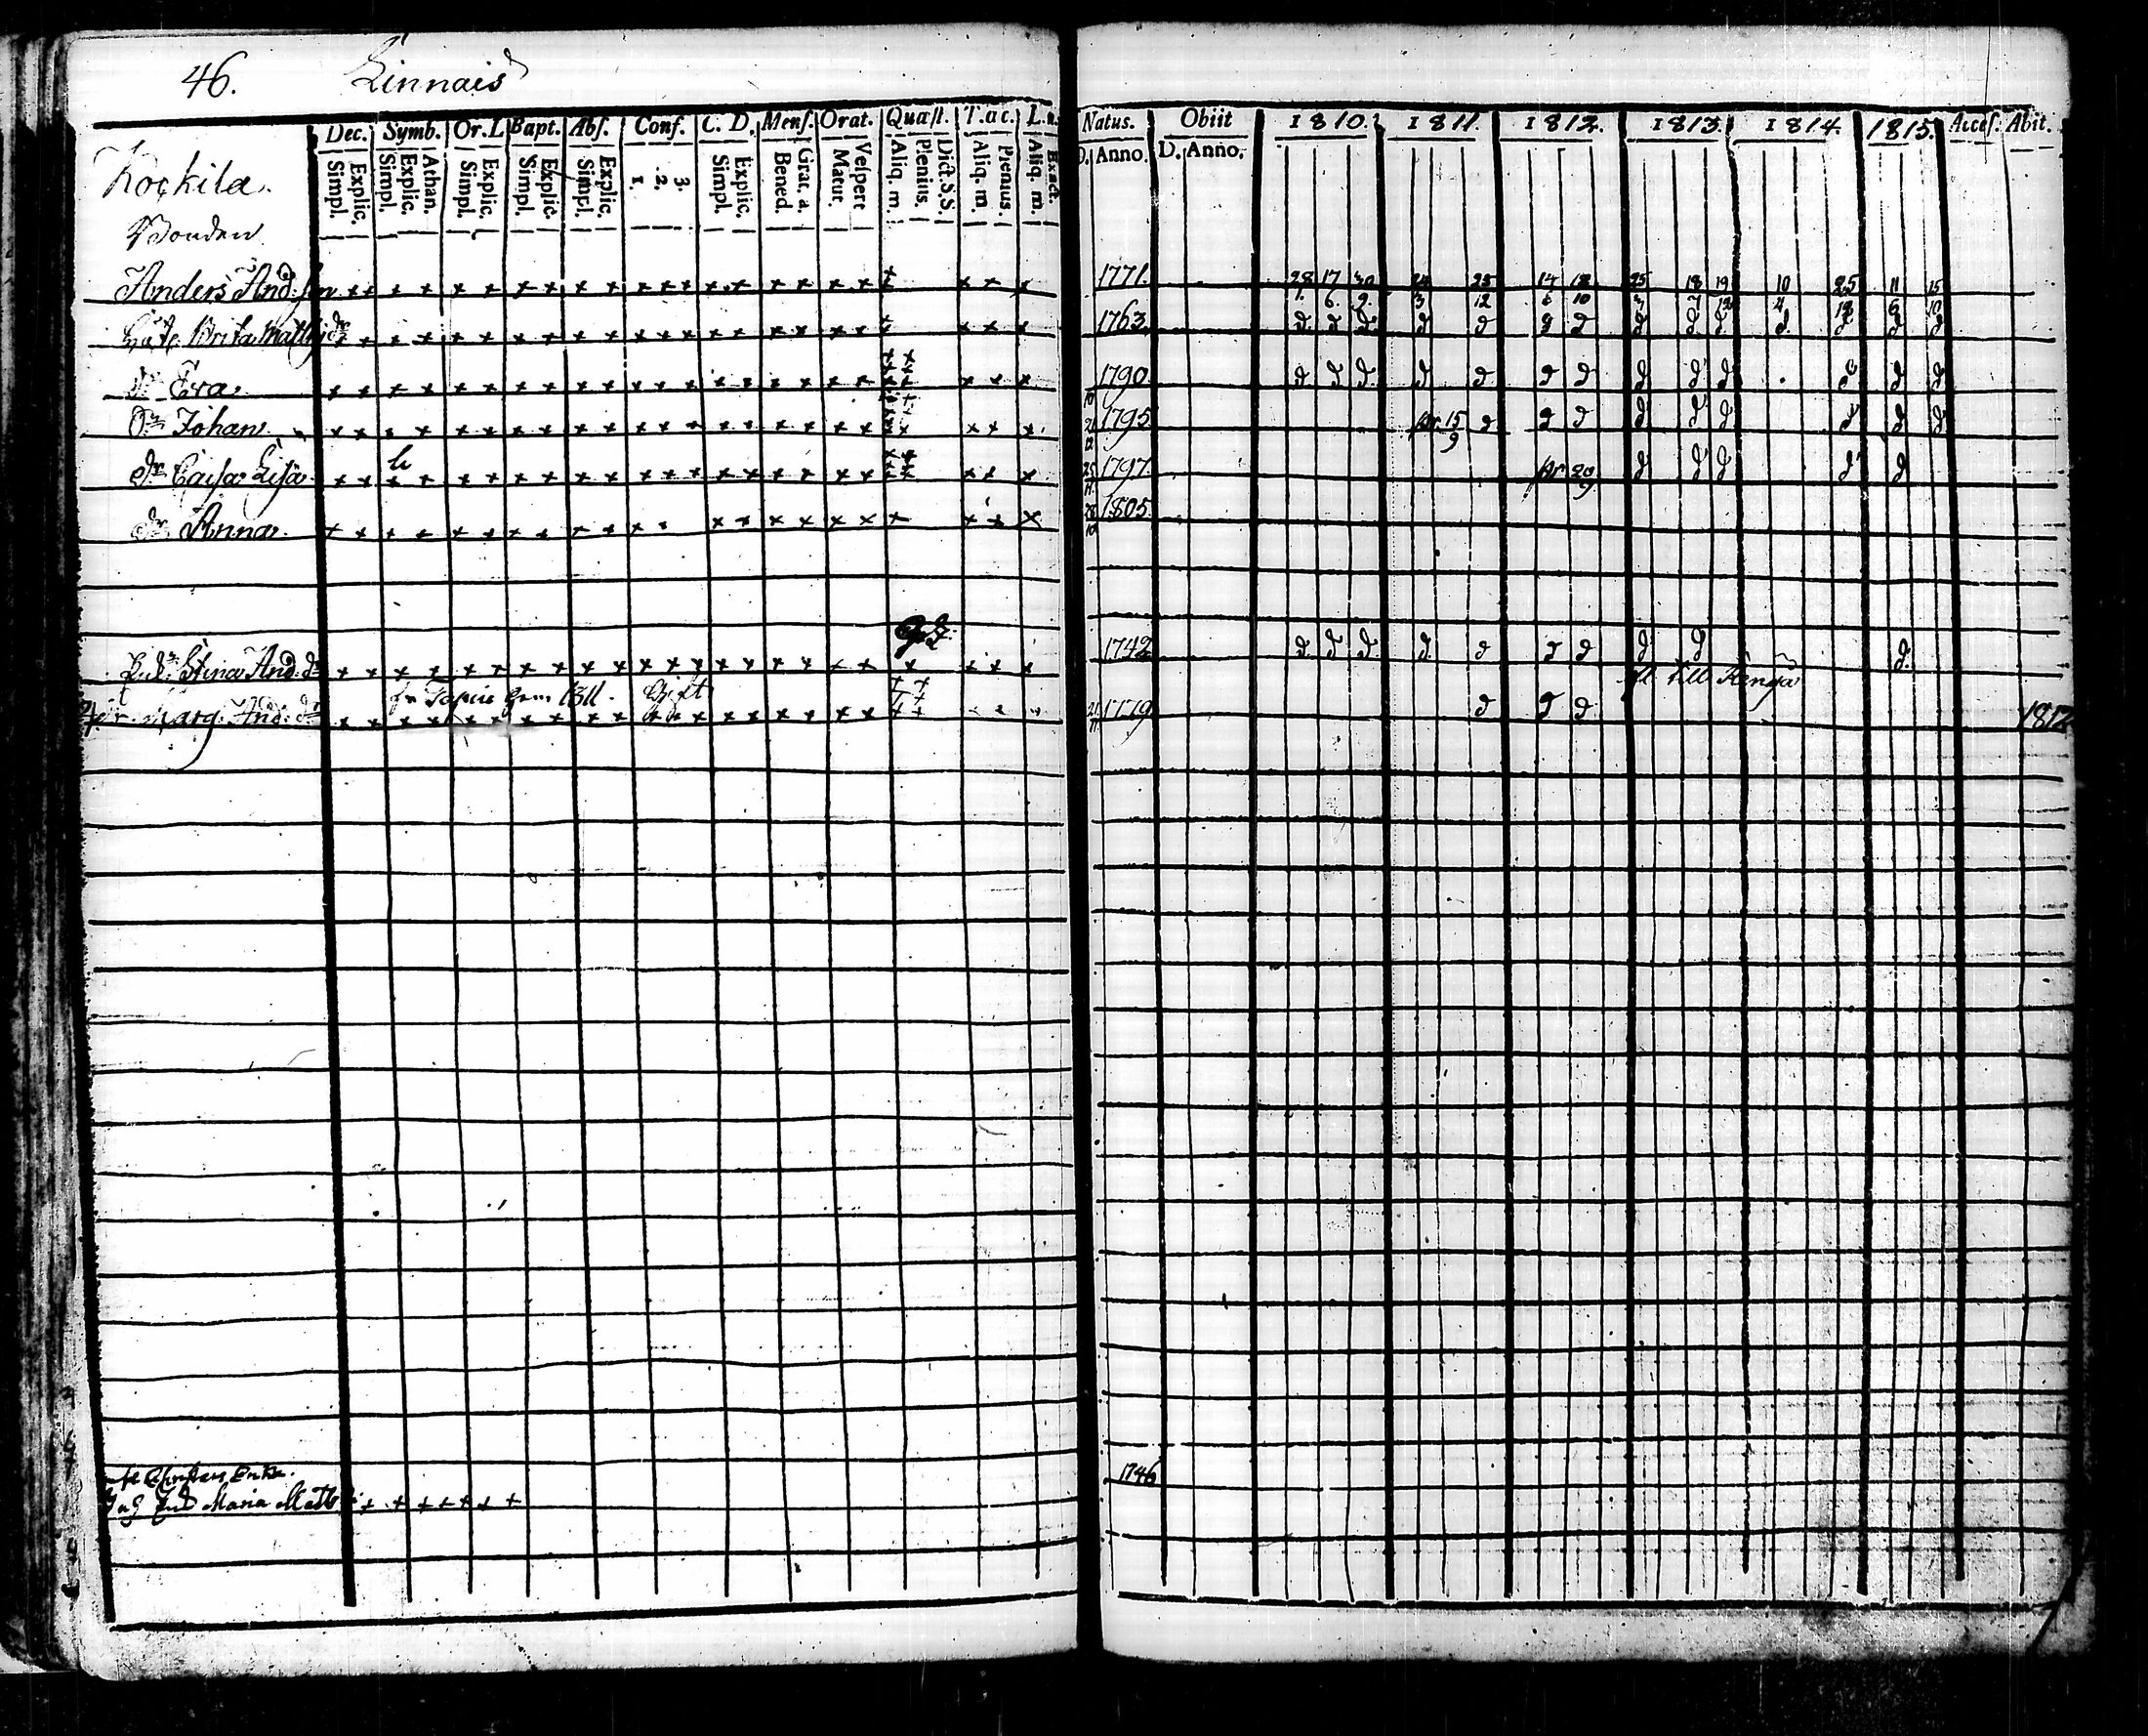 46. Linnais
Dec. Symb. Or. L Bapt. Abs. Conf. C. D. Mens. Orat. Quæst. T. ac. L. n.
Simpl. Explic. Simpl. Explic. Athan. Simpl. Explic. Simpl. Explic. Simpl. Explic. 1. 2. 3. Simpl. Explic. Bened. Grat. a. Matut. Vespert Aliq. m. Plenius. Dict. S.S. Aliq. m. Plenius. Aliq. m. Exact.
Natus. Obiit 1810. 1811. 1812. 1813. 1814. 1815. Access. Abit.
D. Anno. D. Anno.
Kockila.
Bonden
Anders And:son x x x x x x x x x x x x x x x x x x x x x x x 1771. 28 17 30 24 23 14 18 25 18 19 10 25 11 15
1. 6. 9. 3 12 6 10 3 7 12 4 12 6 10
Brita Matts dr x x x x x x x x x x x x x x x x x x x x x x x 1763 d. d. d. d d d d d d. d. d. d d d
dr Eva x x x x x x x x x x x x x x x x x x x x x x x 1790 d d d d d d d d d d d d d
Sn Johan x x x x x x x x x x x x x x x x x x x x x x x 1795 15 9 d d d d d d d d d
dr Caisa Lisa x x x x x x x x x x x x x x x x x x x x x x x 25 11 1797. 29 9 d d d d d
dr Anna. x x x x x x x x x x x x x x x x x x x x x x 28 10 1805.
Stina And: dr x x x x x x x x x x x x x x x x x x x x x x x 1742 d. d d d. d d d d d d.
till
1811. Gift
Marg. And: dr x x x x x x x x x x x x x x x x x x x x x x x 1779 d d d 1812
Enka.
Maria Matts x x x x x x x 1746